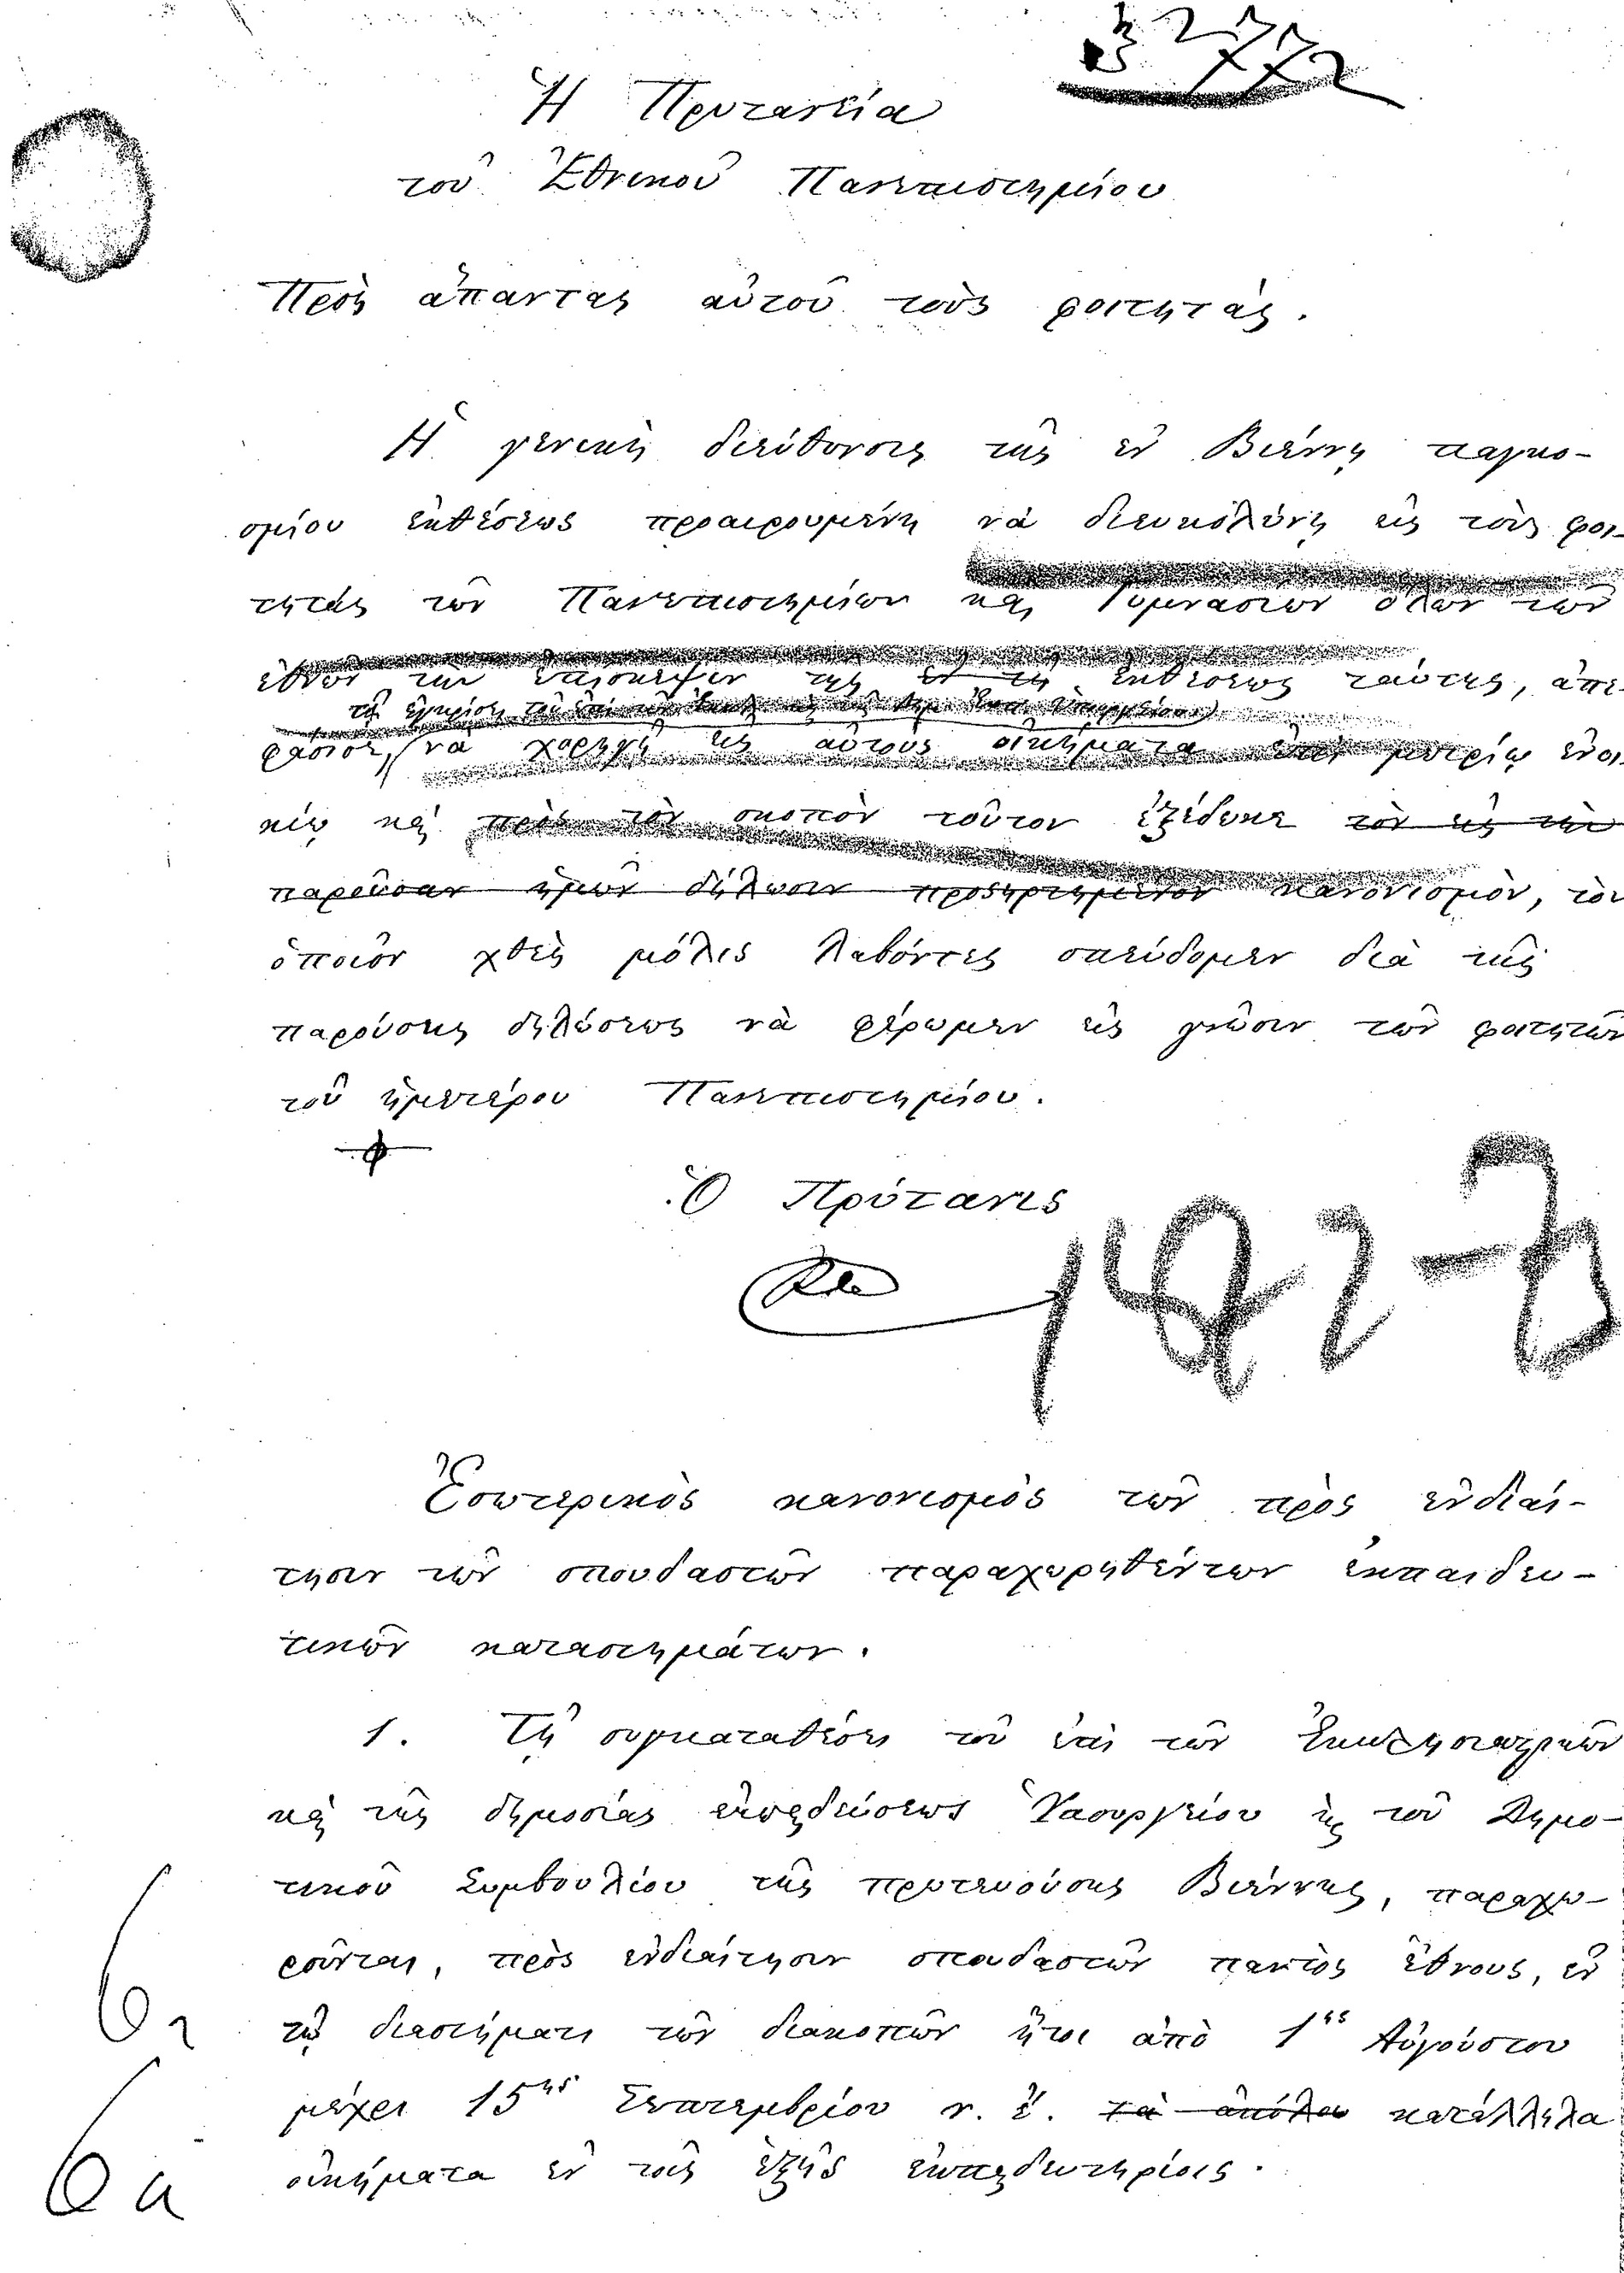 3772
Ἡ Πρυτανεία
τοῦ Ἐθνικοῦ Πανεπιστημίου
Πρὸς ἅπαντας αὐτοῦ τοὺς φοιτητάς.
Ἡ γενικὴ διεύθυνσις τῆς ἐν Βιέννῃ παγκο-
σμίου ἐκθέσεως προαιρουμένη νὰ διευκολύνῃ εἰς τοὺς φοι-
τητὰς τῶν Πανεπιστημίων καὶ Γυμνασίων ὅλων τῶν
ἐθνῶν τὴν ἐπίσκεψιν τῆς ἐκθέσεως ταύτης, ἀπε-
τῇ ἐγκρίσει τοῦ ἐπὶ τῶν Ἐκκλ. καὶ τῆς δημ. Ἐκπ. Ὑπουργείου
φάσισε, νὰ χορηγῇ εἰς αὐτοὺς οἰκήματα ἐπὶ μετρίῳ ἐνοι-
κίῳ καὶ πρὸς τὸν σκοπὸν τοῦτον ἐξέδωκε τὸν εἰς τὴν
παροῦσαν ἡμῶν δήλωσιν προσηρτημένον κανονισμὸν, τὸν
ὁποῖον χθὲς μόλις λαβόντες σπεύδομεν διὰ τῆς
παρούσης δηλώσεως νὰ φέρωμεν εἰς γνῶσιν τῶν φοιτητῶν
τοῦ ἡμετέρου Πανεπιστημίου.
Ὁ Πρύτανις
Ἐσωτερικὸς κανονισμὸς τῶν πρὸς ἐνδιαί-
τησιν τῶν σπουδαστῶν παραχωρηθέντων ἐκπαιδευ-
τικῶν καταστημάτων.
1. Τῇ συγκαταθέσει τοῦ ἐπὶ τῶν Ἐκκλησιαστικῶν
καὶ τῆς δημοσίας ἐκπαιδεύσεως Ὑπουργείου καὶ τοῦ Δημο-
τικοῦ Συμβουλίου τῆς πρωτευούσης Βιέννης, παραχω-
ροῦνται, πρὸς ἐνδιαίτησιν σπουδαστῶν παντὸς ἔθνους, ἐν
τῷ διαστήματι τῶν διακοπῶν ἤτοι ἀπὸ 1ης Αὐγούστου
μέχρι 15ης Σεπτεμβρίου ν. ἔ. τὰ ἀπόλυ κατάλληλα
οἰκήματα ἐν τοῖς ἑξῆς ἐκπαιδευτηρίοις.